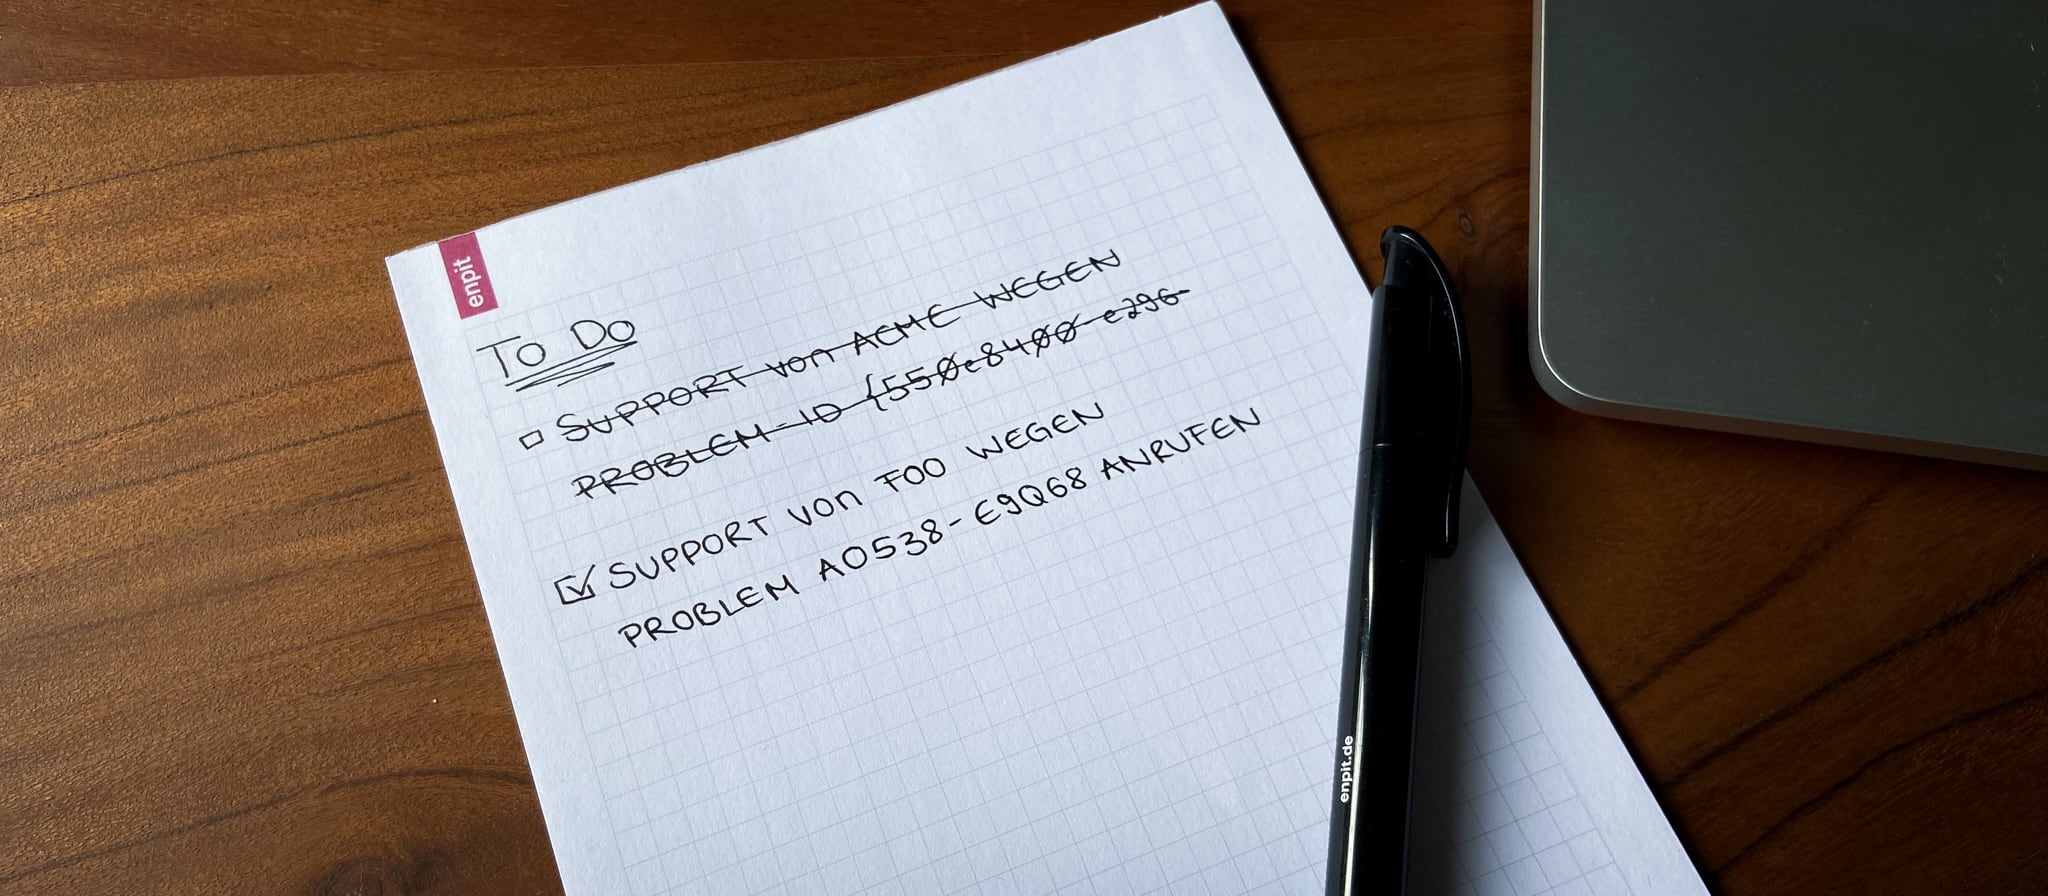 enpit
To Do
SUPPORT von ACME WEGEN
PROBLEM-ID {550e8400-e296-
SUPPORT von FOO WEGEN
PROBLEM A0538-E9Q68 ANRUFEN
enpit.de